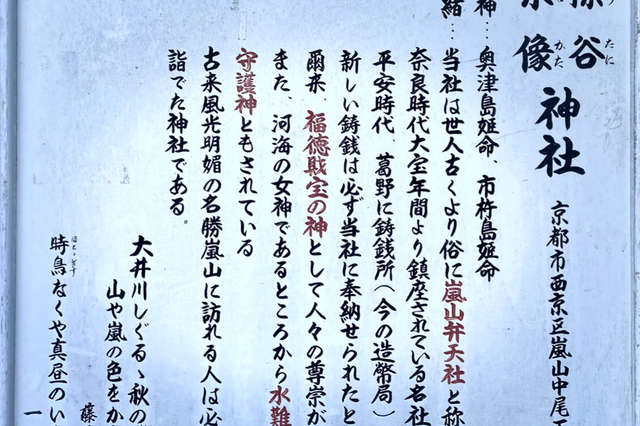 谷
たに
像神社
かた
京都市西京区嵐山中尾
神…奥津島姫命、市杵島姫命
緒…当社は世人古くより俗に嵐山弁天社と称
奈良時代大宝年間より鎮座されている名社
平安時代、葛野に鋳銭所(今の造幣局)
新しい鋳銭は必ず当社に奉納せられたと
爾来、福徳財宝の神として人々の尊崇が
また、河海の女神であるところから水難
守護神ともされている
古来風光明媚の名勝嵐山に訪れる人は必
詣でた神社である。
大井川しぐるゝ秋の
山や嵐の色をか
藤
時鳥なくや真昼のい
一